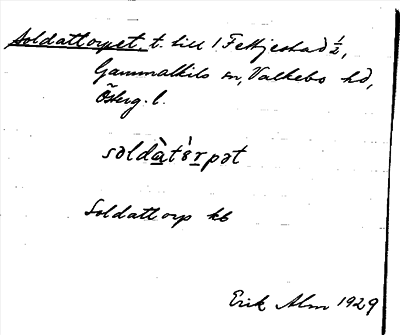 Soldattorpet. t. till 1 Fettjestad ½,
Gammalkils sn, Valkebo hd,
Österg. l.
səldàtórpət
Soldattorp kb
Erik Alm 1929